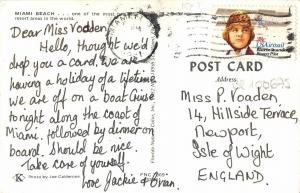 MIAMI BEACH
one of the most
resort areas in the world.
Dear Miss Voaden,
Hello, thought we'd
drop you a card, we are
having a holiday of a lifetime
we are off on a boat cruise
tonight along the coast of
Miami, followed by dinner on
board, should be nice.
Take care of yourself.
love Jackie & Evan.
Photo by Joe Calderone
PNC
USAirmail
POST CARD
Address
Miss P. Voaden
14, Hillside Terrace,
Newport,
Isle of Wight
ENGLAND.